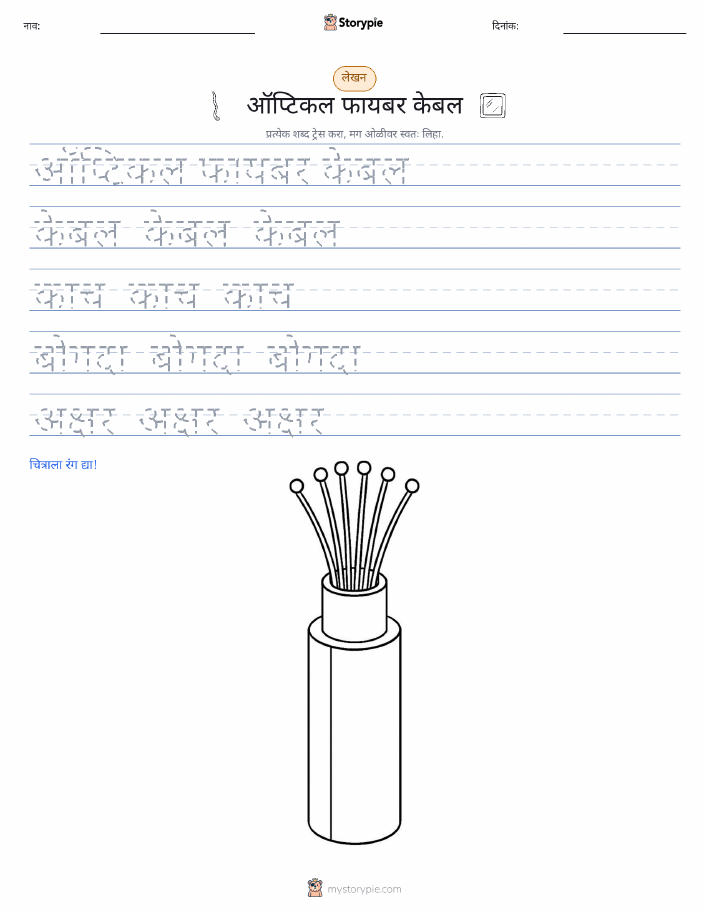 नाव:
Storypie
दिनांक:
लेखन
ऑप्टिकल फायबर केबल
प्रत्येक शब्द ट्रेस करा, मग ओळीवर स्वतः लिहा.
ऑप्टिकल फायबर केबल
केबल केबल केबल
काच काच काच
बोगदा बोगदा बोगदा
अक्षर अक्षर अक्षर
चित्राला रंग द्या!
mystorypie.com